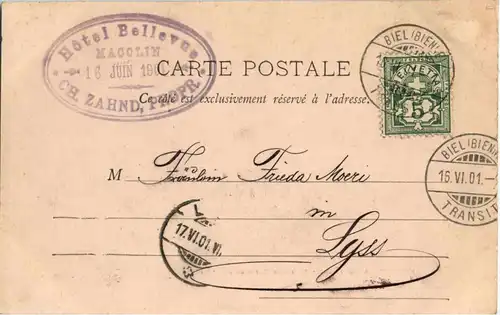 Hôtel Bellevue
MACOLIN
16 JUIN 190
CH. ZAHND, PROPR.
CARTE POSTALE
Ce côté est exclusivement réservé à l'adresse.
BIEL (BIENNE)
HELVETIA
5
BIEL (BIENNE)
16.VI.01.-
TRANSIT
M Fräulein Frieda Moeri
in
Lyss
L
17.VI.01.VI.